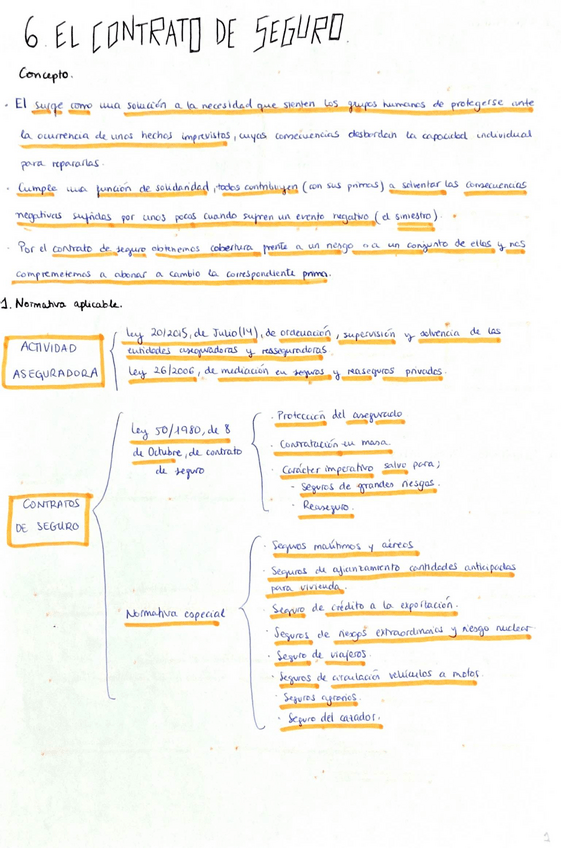 6. EL CONTRATO DE SEGURO.
Concepto.
· El surge como una solución a la necesidad que sienten los grupos humanos de protegerse ante
la ocurrencia de unos hechos imprevistos, cuyas consecuencias desbordan la capacidad individual
para repararlas.
· Cumple una función de solidaridad, todos contribuyen (con sus primas) a solventar las consecuencias
negativas sufridas por unos pocos cuando sufren un evento negativo (el siniestro).
· Por el contrato de seguro obtenemos cobertura frente a un riesgo o a un conjunto de ellos y nos
comprometemos a abonar a cambio la correspondiente prima.
1. Normativa aplicable.
ACTIVIDAD
ASEGURADORA
Ley 20/2015, de Julio (14), de ordenación, supervisión y solvencia de las
entidades aseguradoras y reaseguradoras.
Ley 26/2006, de mediación en seguros y reaseguros privados.
CONTRATOS
DE SEGURO
Ley 50/1980, de 8
de Octubre, de contrato
de seguro
· Protección del asegurado
· Contratación en masa
· Carácter imperativo salvo para;
- Seguros de grandes riesgos.
- Reaseguro.
Normativa especial
· Seguros marítimos y aéreos
· Seguros de afianzamiento cantidades anticipadas
para vivienda.
· Seguro de crédito a la exportación.
· Seguros de riesgos extraordinarios y riesgo nuclear
· Seguro de viajeros.
· Seguros de circulación vehículos a motor.
· Seguros agrarios.
· Seguro del cazador.
1